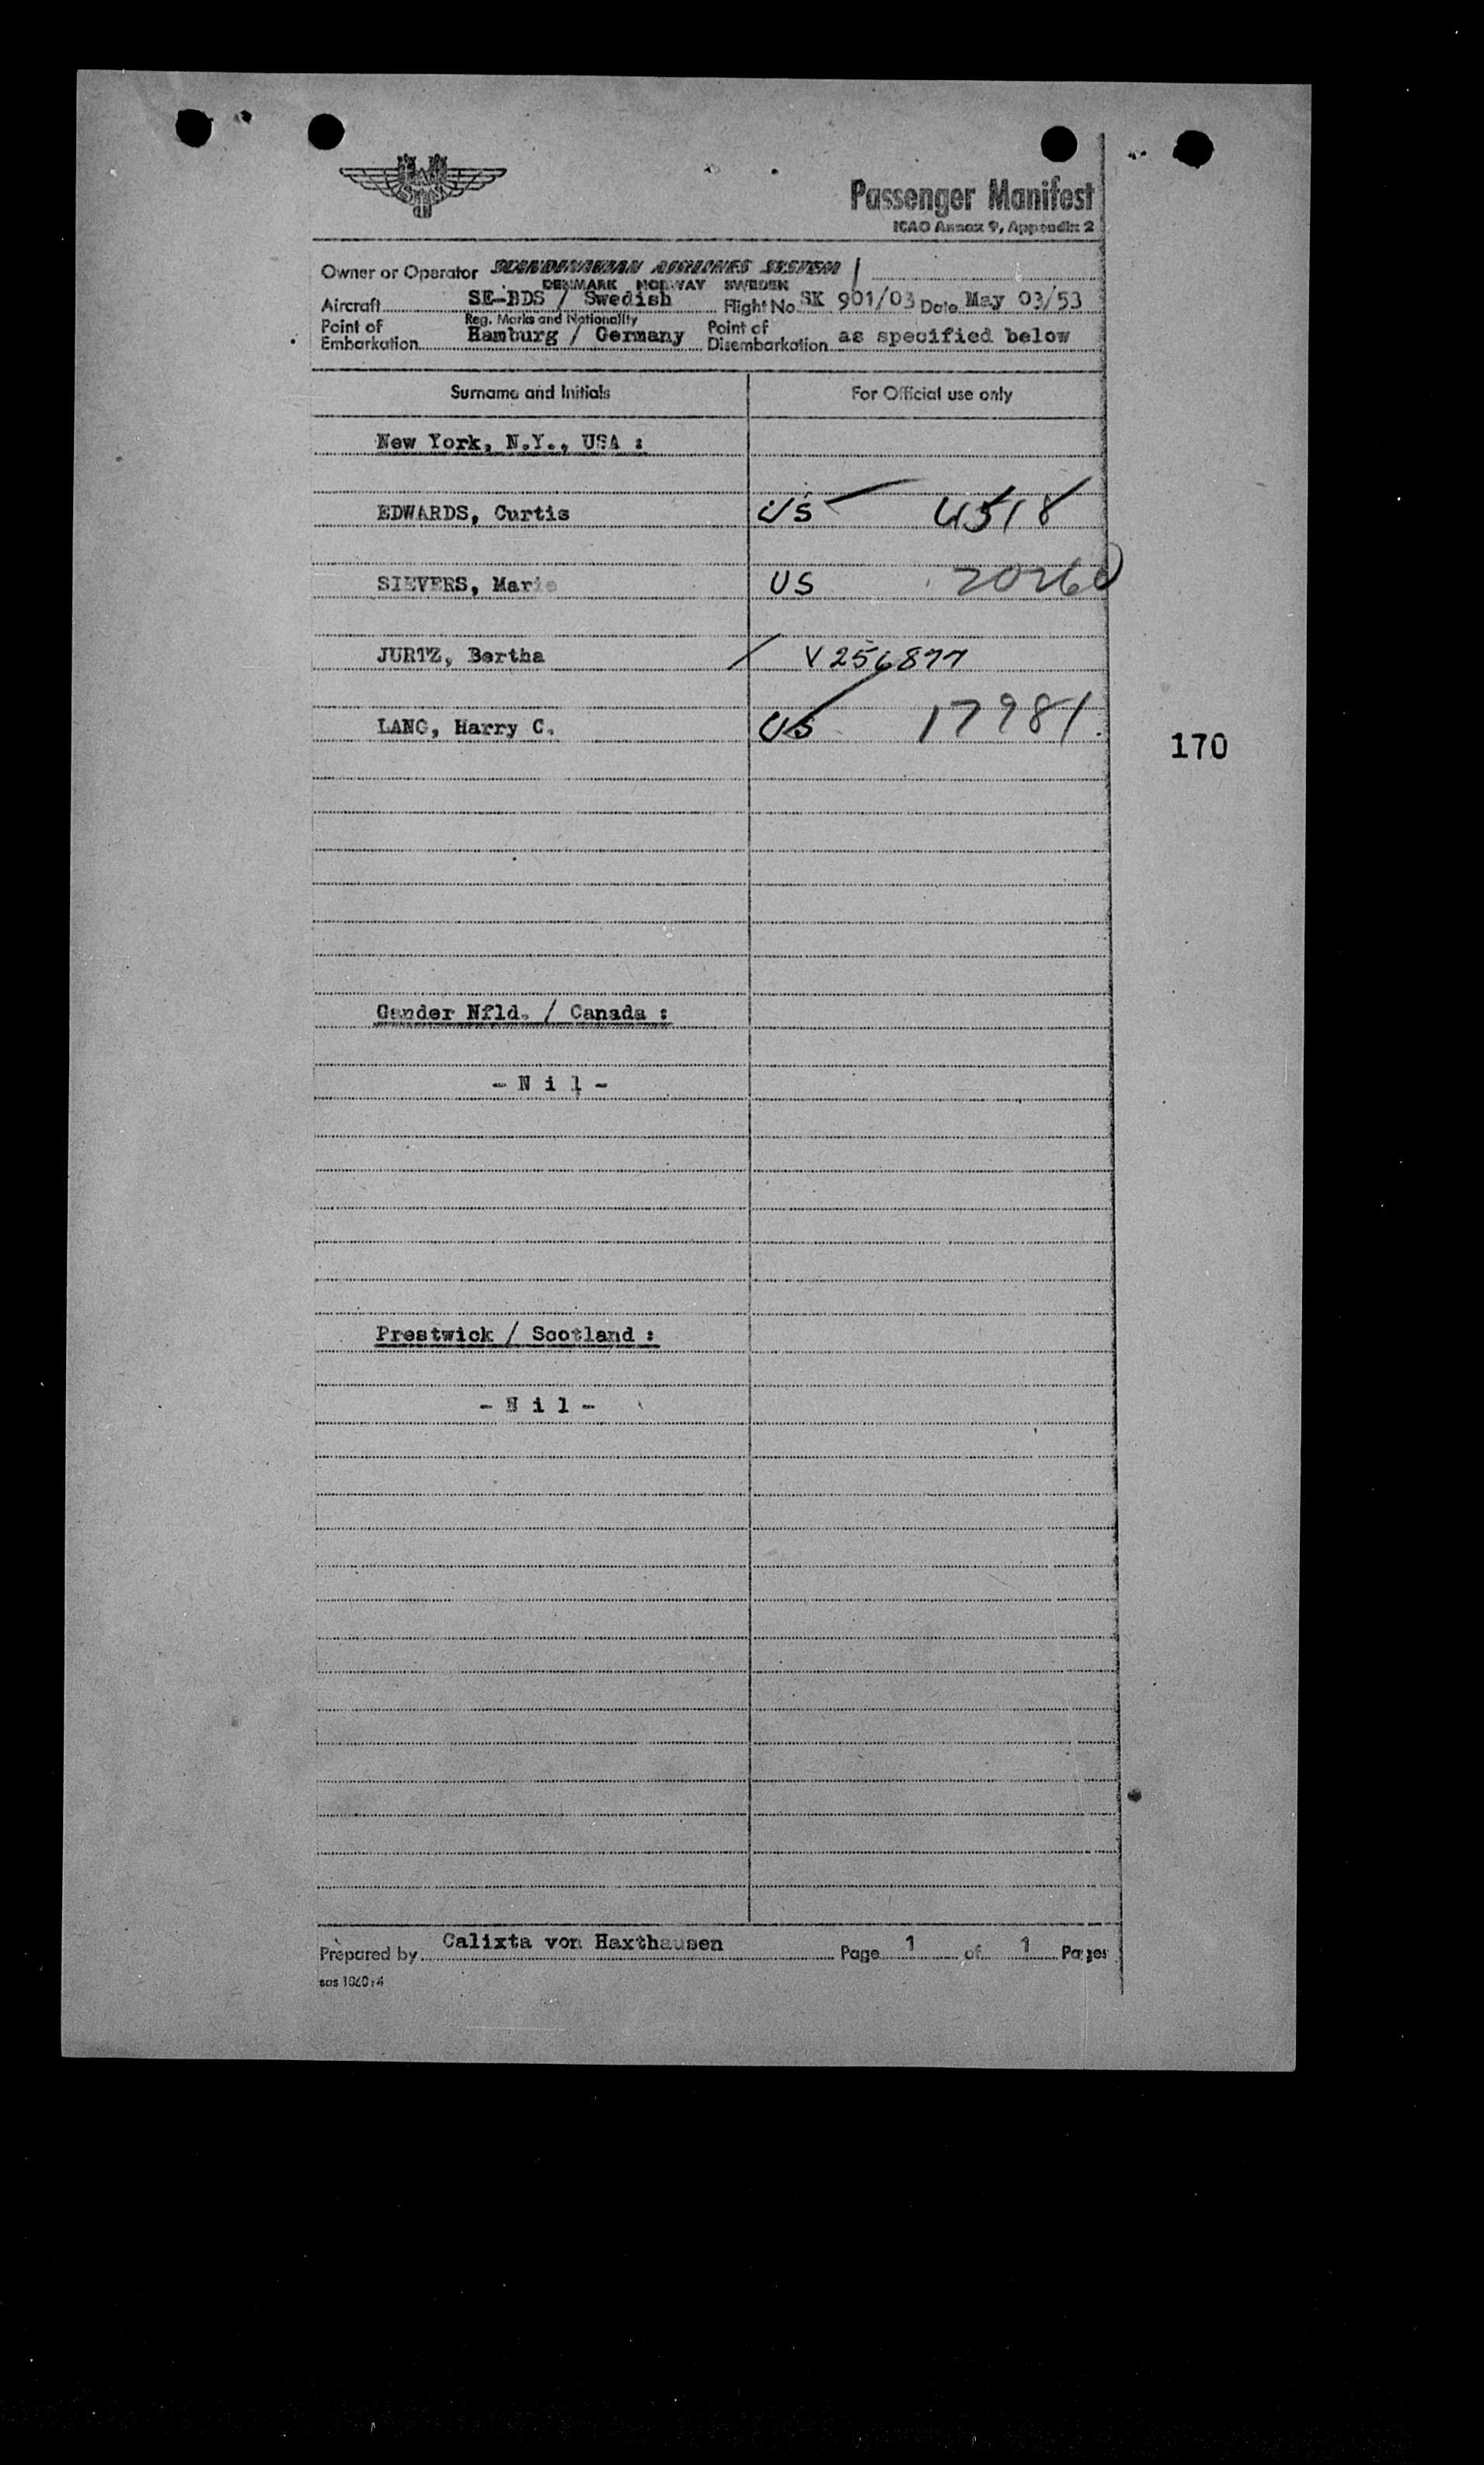 SAS
Passenger Manifest
ICAO Annex 9, Appendix 2
Owner or Operator SCANDINAVIAN AIRLINES SYSTEM
DENMARK NORWAY SWEDEN
Aircraft SE-BDS / Swedish Flight No. SK 901/03 Date May 03/53
Reg. Marks and Nationality
Point of Embarkation Hamburg / Germany Point of Disembarkation as specified below
Surname and Initials For Official use only
New York, N.Y., USA :
EDWARDS, Curtis US 4518
SIEVERS, Marie US 20260
JURTZ, Bertha / V256877
LANG, Harry C. US 17981
170
Gander Nfld. / Canada :
- N i l -
Prestwick / Scotland :
- N i l -
Prepared by Calixta von Haxthausen Page 1 of 1 Pages